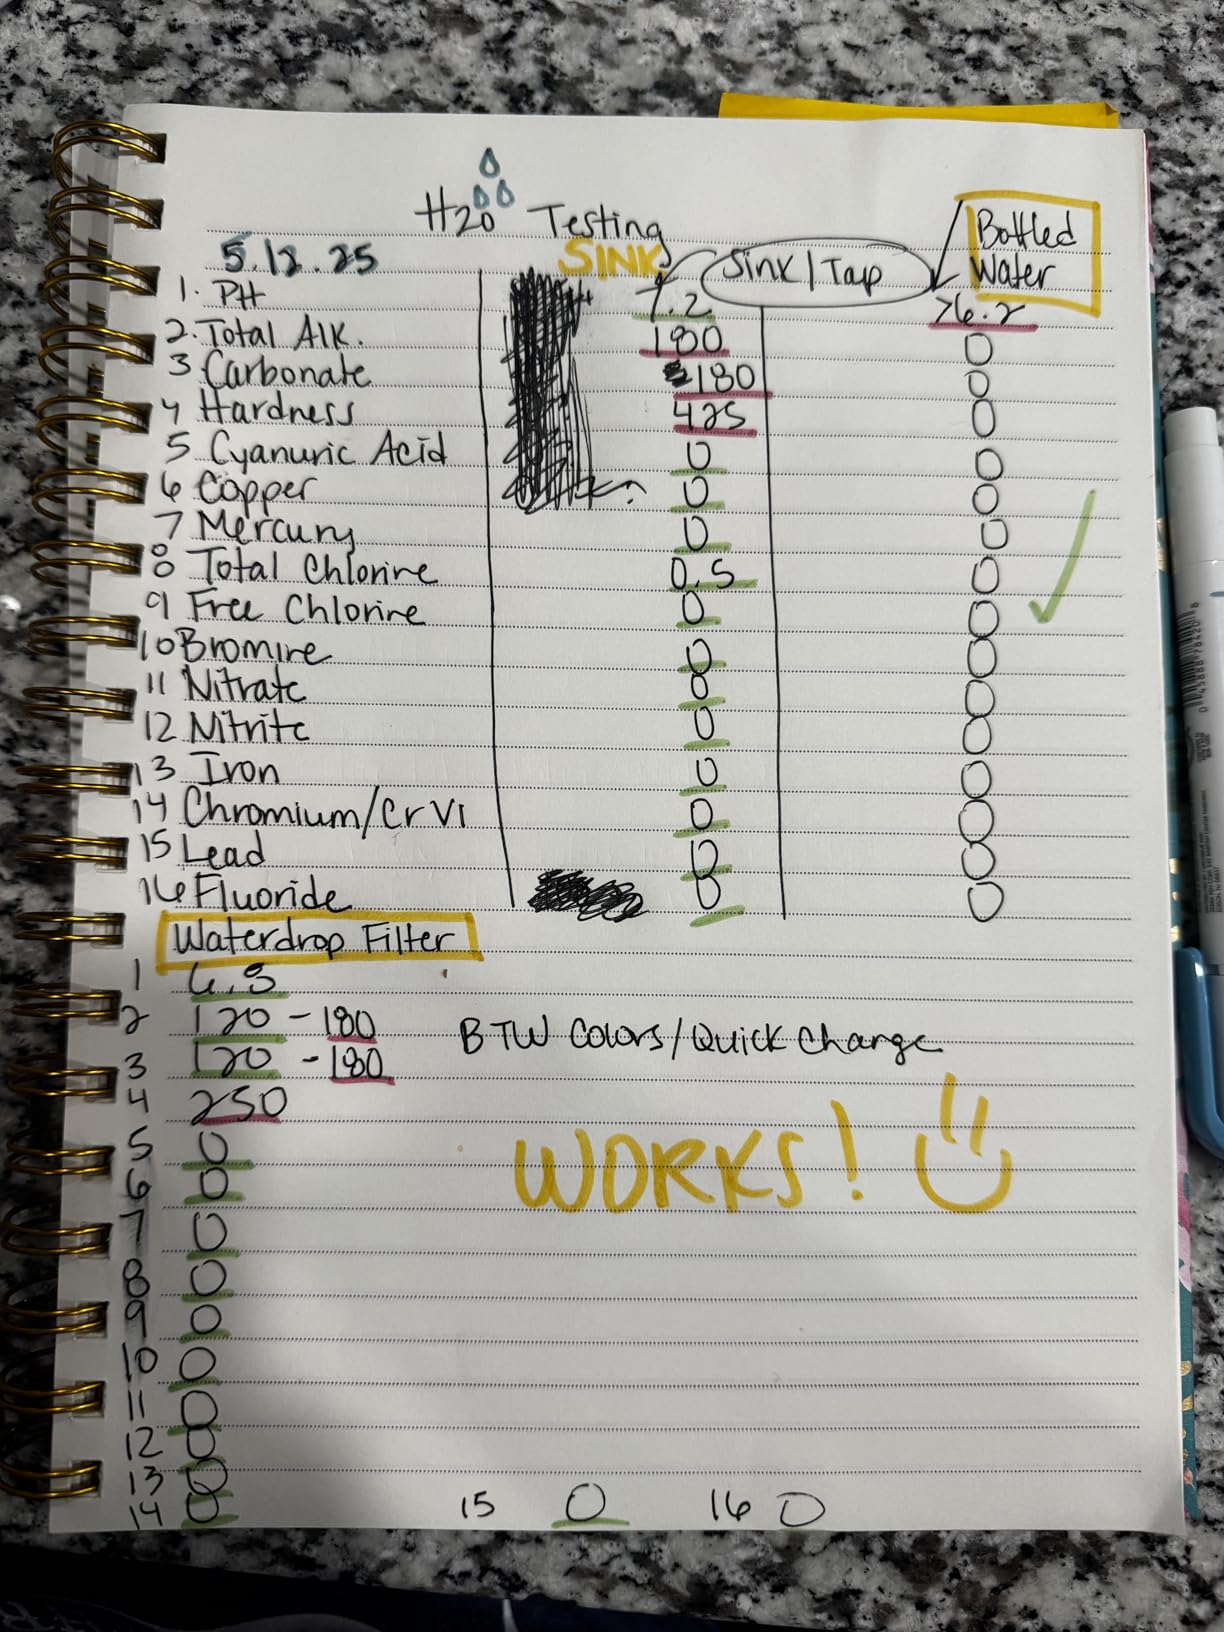 H20 Testing
5.12.25 SINK Sink/Tap Bottled Water
1. PH 7.2 >6.2
2. Total Alk. 180 0
3 Carbonate 180 0
4 Hardness 425 0
5 Cyanuric Acid 0 0
6 Copper 0 0
7 Mercury 0 0
8 Total Chlorine 0.5 0
9 Free Chlorine 0 0
10 Bromine 0 0
11 Nitrate 0 0
12 Nitrite 0 0
13 Iron 0 0
14 Chromium/Cr VI 0 0
15 Lead 0 0
16 Fluoride 0 0
Waterdrop Filter
1 6.8
2 120 - 180 BTW Colors/Quick Change
3 120 - 180
4 250
5 0 WORKS!
6 0
7 0
8 0
9 0
10 0
11 0
12 0
13 0
14 0 15 0 16 0